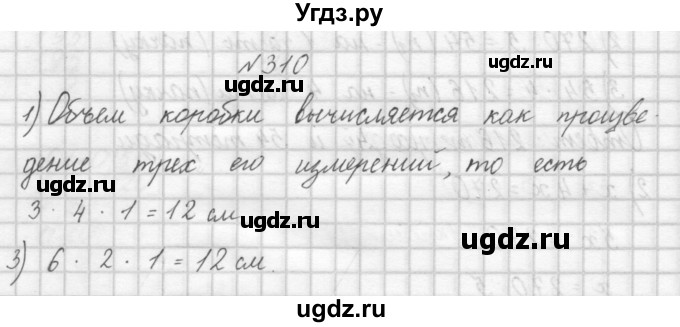 Угдз.ру
№310
1) Объем коробки вычисляется как произве-
дение трех его измерений, то есть
3 · 4 · 1 = 12 см
3) 6 · 2 · 1 = 12 см.
ugdz.ru
ugdz.ru
ugdz.ru
ugdz.ru
ugdz.ru
ugdz.ru
ugdz.ru